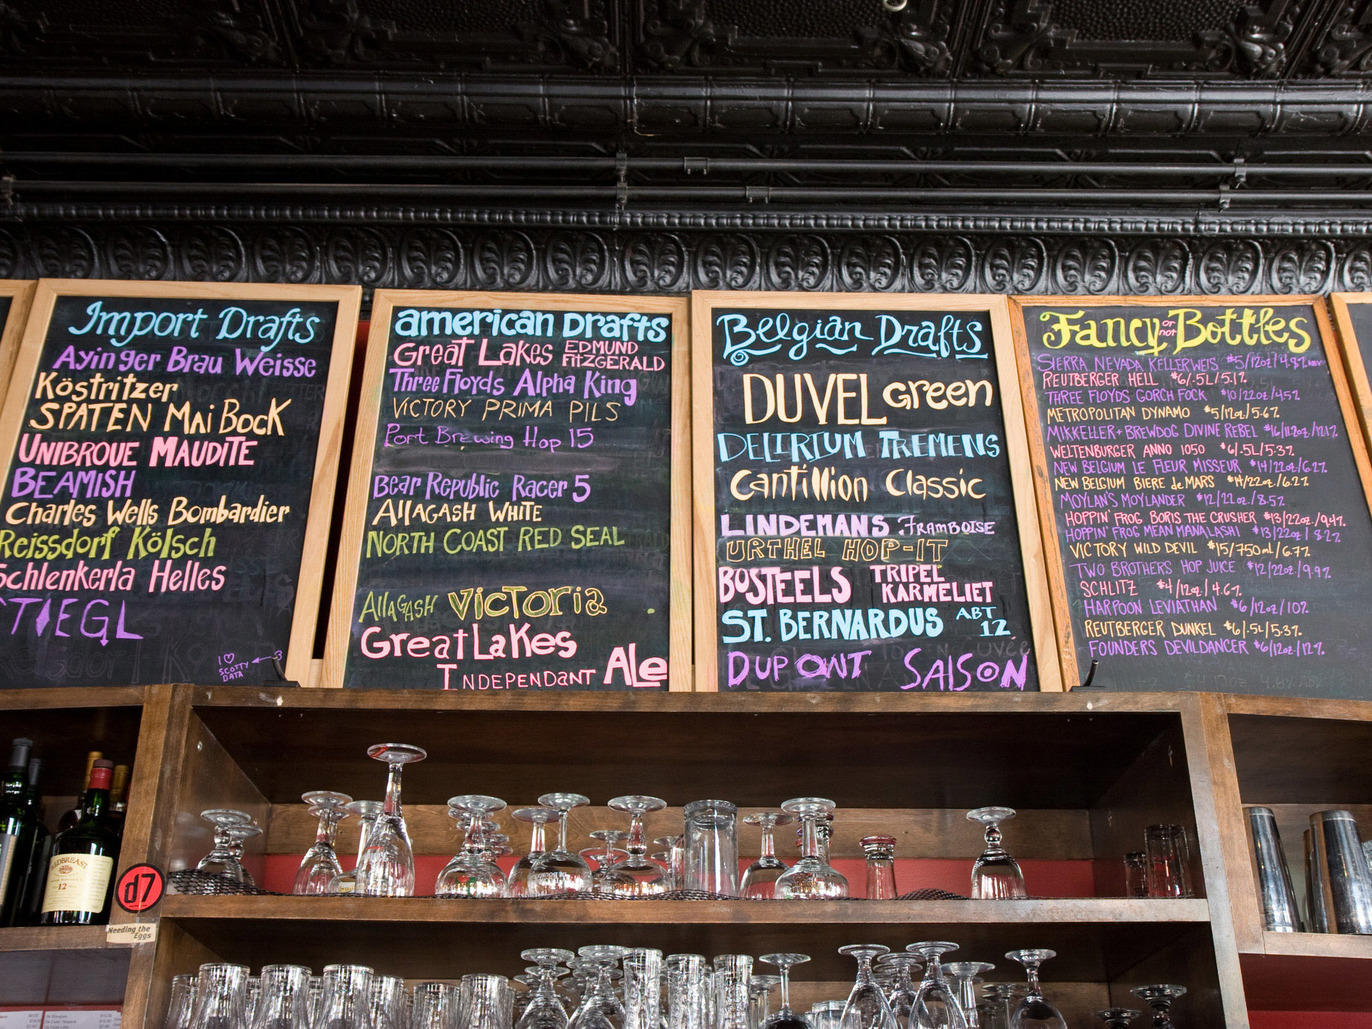 Import Drafts
Ayinger Brau Weisse
Köstritzer
SPATEN Mai Bock
UNIBROUE MAUDITE
BEAMISH
Charles Wells Bombardier
Reissdorf Kölsch
Schlenkerla Helles
STIEGL
I ♡
SCOTTY
DATA
american DRAFTS
Great Lakes EDMUND FITZGERALD
Three Floyds Alpha King
VICTORY PRIMA PILS
Port Brewing Hop 15
Bear Republic Racer 5
Allagash White
NORTH COAST RED SEAL
Allagash VICTORIA
Great Lakes
INDEPENDANT Ale
Belgian Drafts
DUVEL Green
DELIRIUM TREMENS
Cantillion Classic
LINDEMANS FRAMBOISE
URTHEL HOP-IT
BOSTEELS TRIPEL KARMELIET
ST. BERNARDUS ABT 12
DUPONT SAISON
Fancy or not Bottles
SIERRA NEVADA KELLERWEIS $5/12oz/4.8%
REUTBERGER HELL $6/.5L/5.1%
THREE FLOYDS GORCH FOCK $10/22oz/4.5%
METROPOLITAN DYNAMO $5/12oz/5.6%
MIKKELLER + BREWDOG DIVINE REBEL $16/11.2oz/12.1%
WELTENBURGER ANNO 1050 $6/.5L/5.3%
NEW BELGIUM LE FLEUR MISSEUR $14/22oz/6.2%
NEW BELGIUM BIERE de MARS $14/22oz/6.2%
MOYLAN'S MOYLANDER $12/22oz/8.5%
HOPPIN' FROG BORIS THE CRUSHER $13/22oz/9.4%
HOPPIN' FROG MEAN MANALASHI $13/22oz/8.2%
VICTORY WILD DEVIL $15/750ml/6.7%
TWO BROTHERS HOP JUICE $12/22oz/9.9%
SCHLITZ $4/12oz/4.6%
HARPOON LEVIATHAN $6/12oz/10%
REUTBERGER DUNKEL $6/.5L/5.3%
FOUNDERS DEVILDANCER $6/12oz/12%
REDBREAST
12
d7
Needing the
Eggs